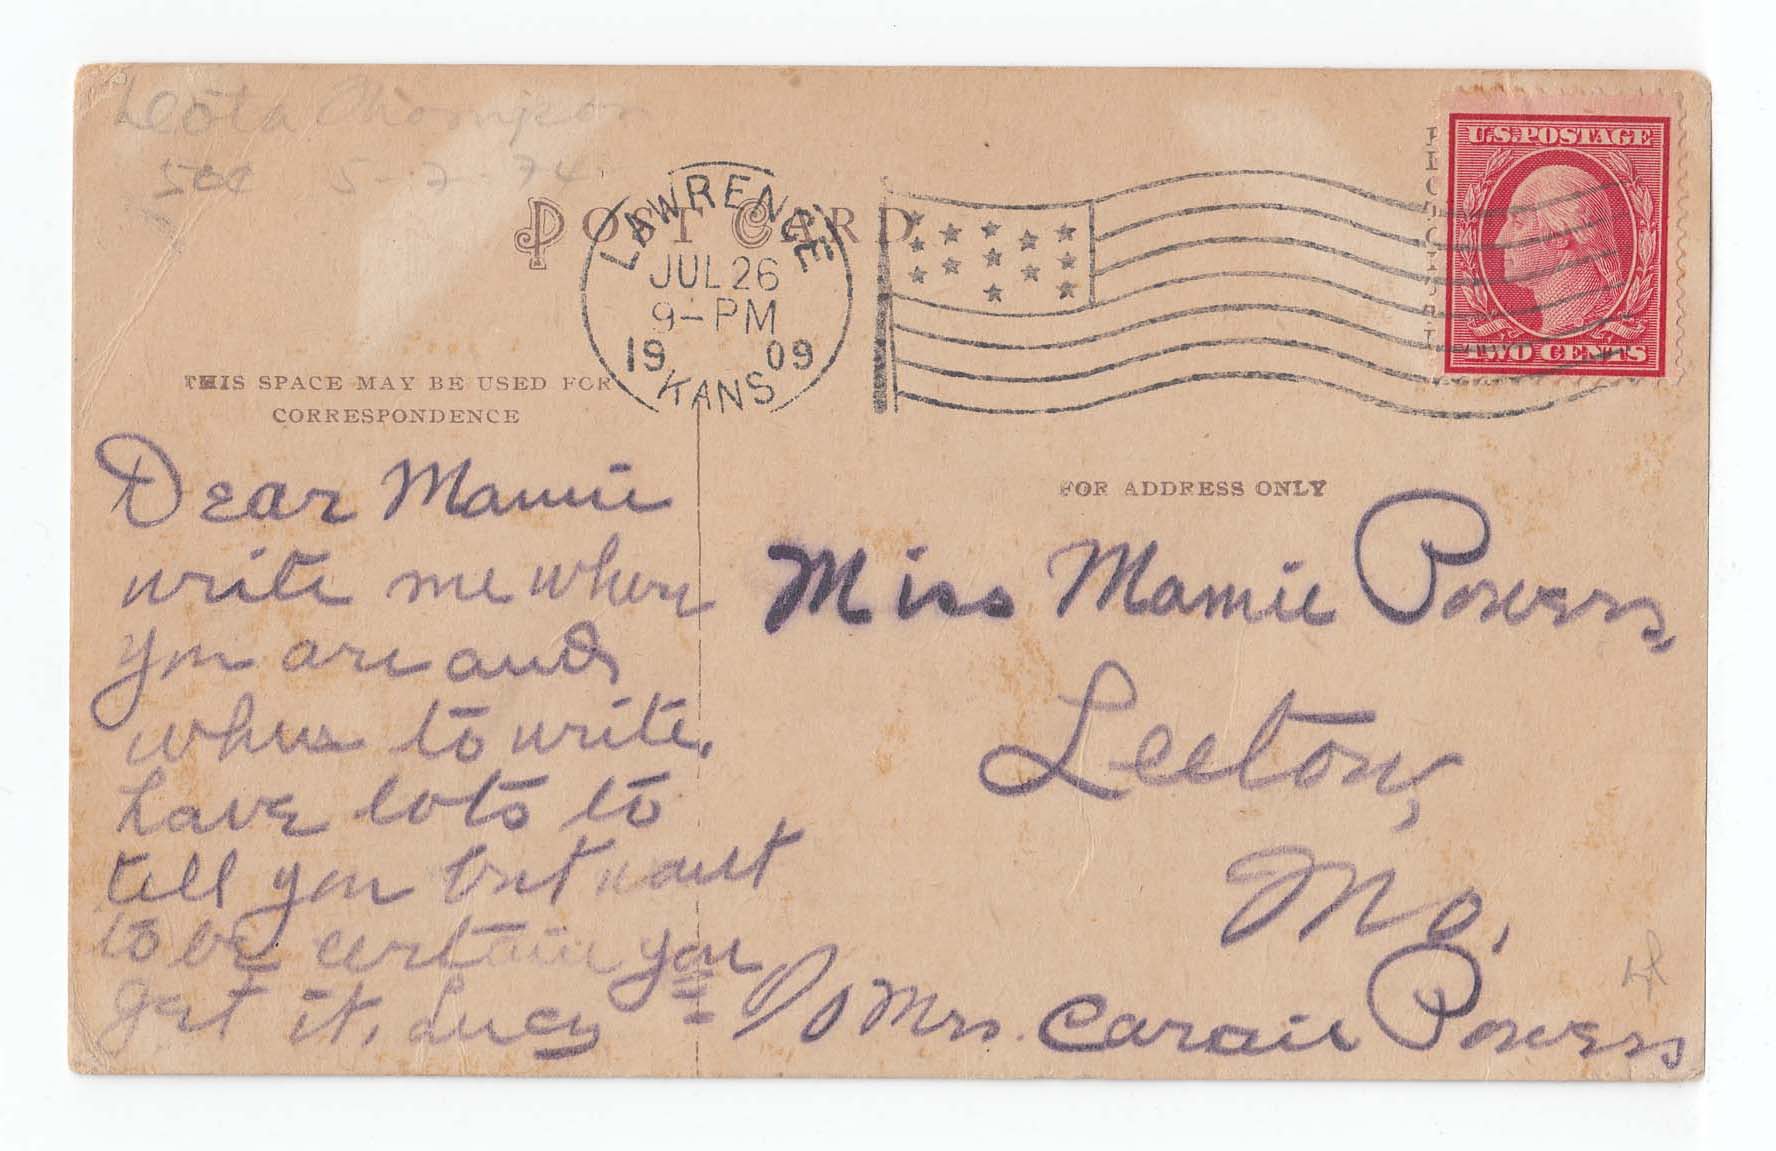 Leota Thompson
50¢ 5-2-74
POST CARD
LAWRENCE
JUL 26
9-PM
1909
KANS
U.S. POSTAGE
TWO CENTS
THIS SPACE MAY BE USED FOR
CORRESPONDENCE
Dear Mamie
write me when
you are and
where to write.
have lots to
tell you but want
to be certain you
get it, Lucy
FOR ADDRESS ONLY
Miss Mamie Powers
Leeton,
Mo.
c/o Mrs. Carrie Powers